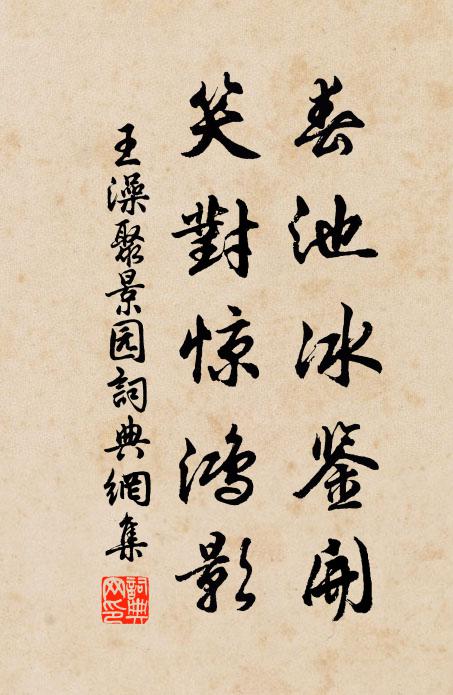 春池冰鉴开
笑對惊鴻影
王澡聚景园詞典網集
詞典